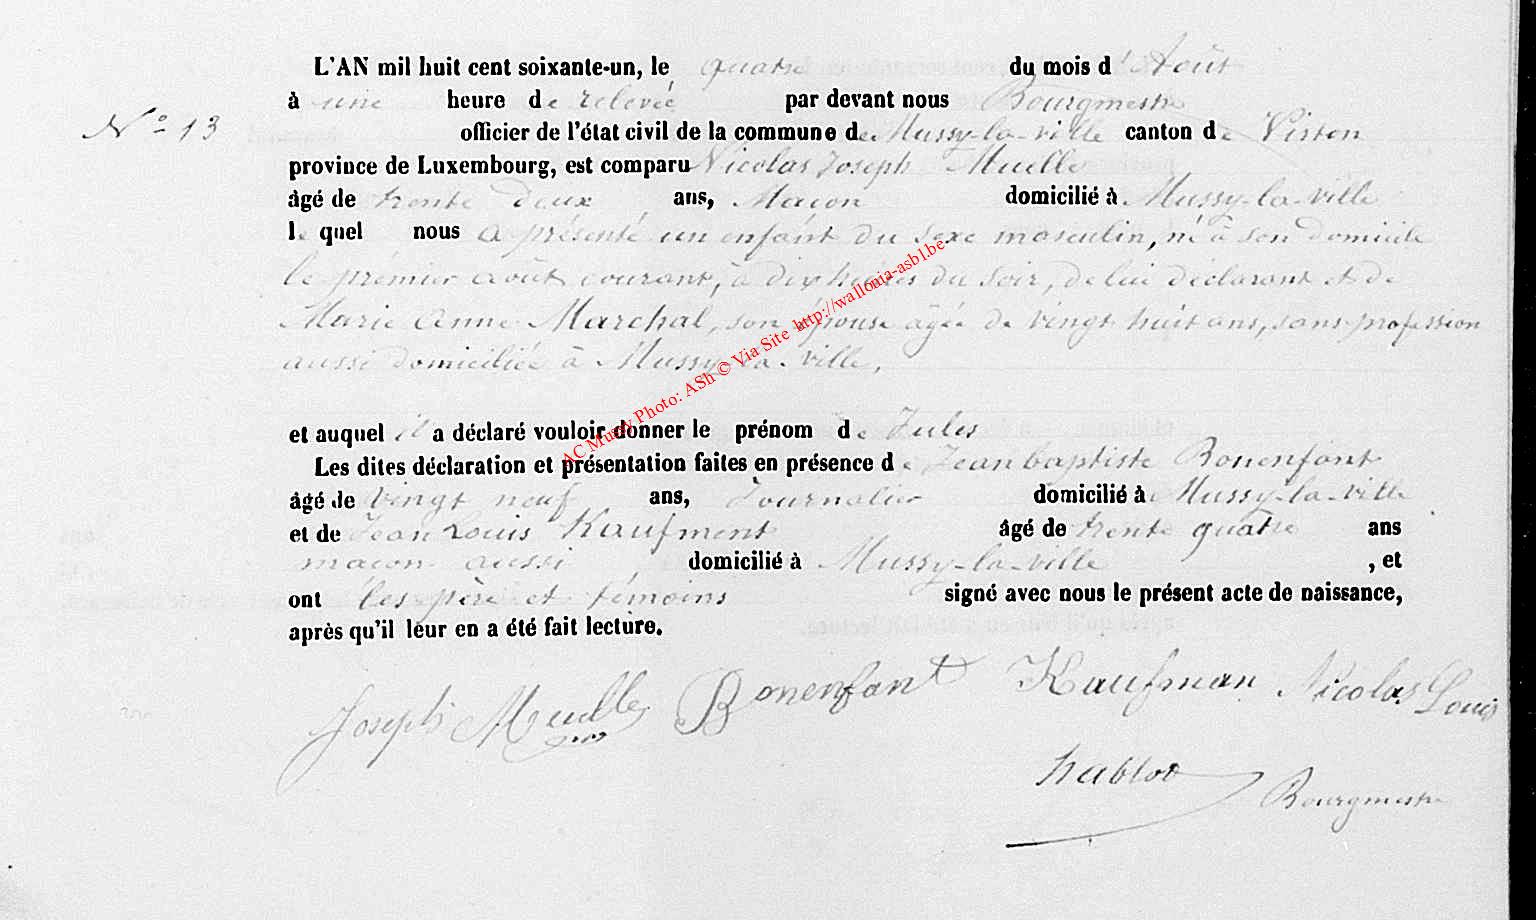 L'AN mil huit cent soixante-un, le quatre du mois d'Août
à une heure de relevée par devant nous Bourgmestre
N° 13
officier de l'état civil de la commune de Mussy-la-ville canton de Virton
province de Luxembourg, est comparu Nicolas Joseph Muelle
âgé de trente deux ans, Maçon domicilié à Mussy-la-ville
le quel nous a présenté un enfant du sexe masculin, né à son domicile
le prémier août courant, à dix heures du soir, de lui déclarant et de
Marie Anne Marchal, son épouse âgée de vingt huit ans, sans profession
aussi domiciliée à Mussy-la-ville,
AC Mussy Photo: ASh © Via Site http://wallonia-asbl.be
et auquel il a déclaré vouloir donner le prénom de Jules
Les dites déclaration et présentation faites en présence de Jean baptiste Bonenfant
âgé de vingt neuf ans, Journalier domicilié à Mussy-la-ville
et de Jean Louis Kaufment âgé de trente quatre ans
maçon aussi domicilié à Mussy-la-ville , et
ont les père et témoins signé avec nous le présent acte de naissance,
après qu'il leur en a été fait lecture.
Joseph Muelle Bonenfant Kaufman Nicolas Louis
hablot Bourgmestre